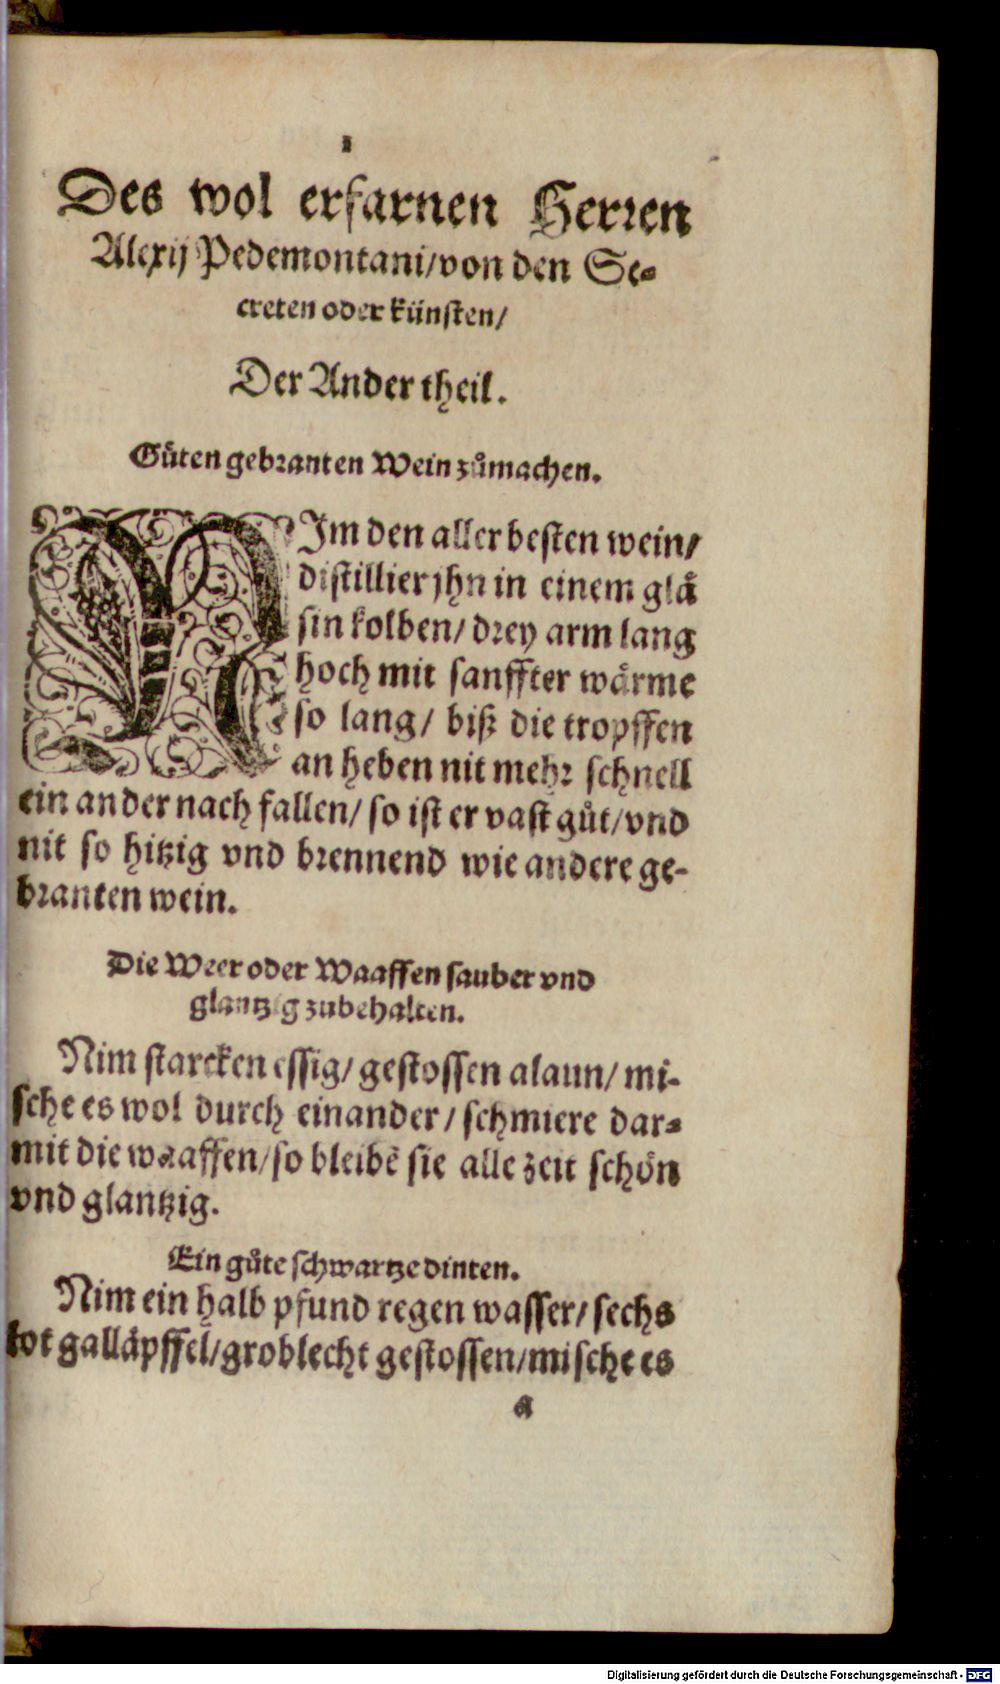 1
Des wol erfarnen Herren
Alexij Pedemontani/von den Se-
creten oder künsten/
Der Ander theil.
Gůten gebranten Wein zůmachen.
NIm den aller besten wein/
distillier jhn in einem glå
sin kolben/ drey arm lang
hoch mit sanffter wårme
so lang/ biß die tropffen
an heben nit mehr schnell
ein ander nach fallen/ so ist er vast gůt/vnd
nit so hitzig vnd brennend wie andere ge-
branten wein.
Die Weer oder Waaffen sauber vnd
glantzig zubehalten.
Nim starcken essig/ gestossen alaun/ mi-
sche es wol durch einander/ schmiere dar-
mit die waaffen/so bleibē sie alle zeit schön
vnd glantzig.
Ein gůte schwartze dinten.
Nim ein halb pfund regen wasser/ sechs
lot galläpffel/groblecht gestossen/mische es
a
Digitalisierung gefördert durch die Deutsche Forschungsgemeinschaft - DFG